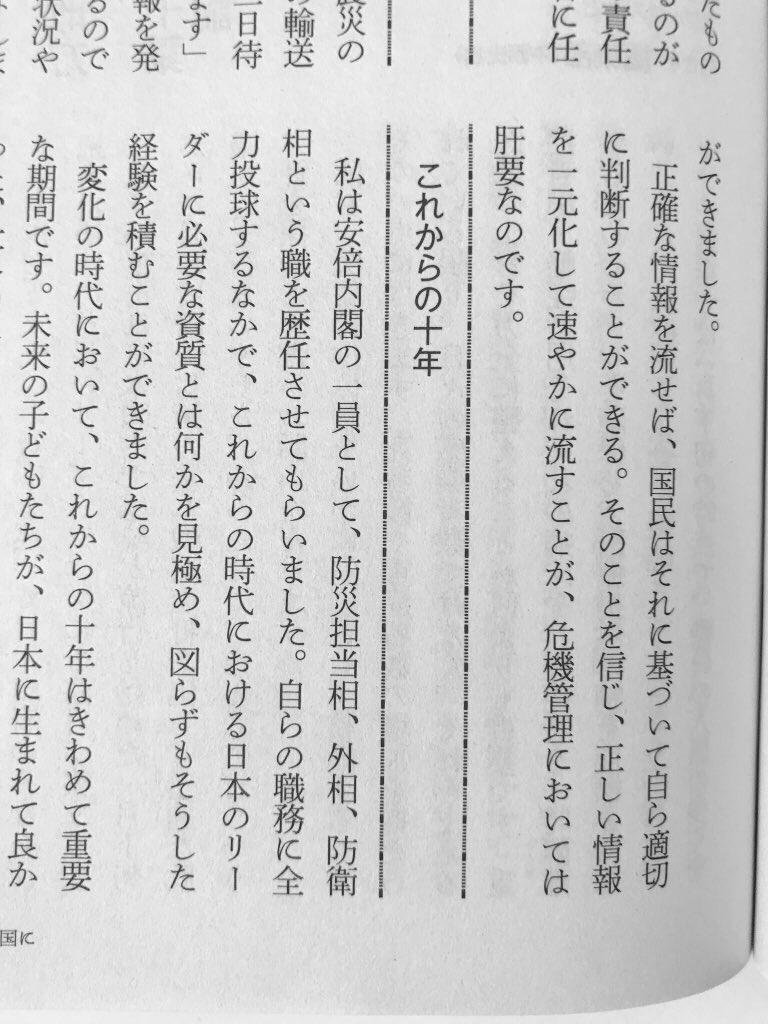 たもの
るのが
責任
に任
震災の
の輸送
日待
ます」
報を発
るので
状況や
ができました。
正確な情報を流せば、国民はそれに基づいて自ら適切
に判断することができる。そのことを信じ、正しい情報
を一元化して速やかに流すことが、危機管理においては
肝要なのです。
これからの十年
私は安倍内閣の一員として、防災担当相、外相、防衛
相という職を歴任させてもらいました。自らの職務に全
力投球するなかで、これからの時代における日本のリー
ダーに必要な資質とは何かを見極め、図らずもそうした
経験を積むことができました。
変化の時代において、これからの十年はきわめて重要
な期間です。未来の子どもたちが、日本に生まれて良か
国に